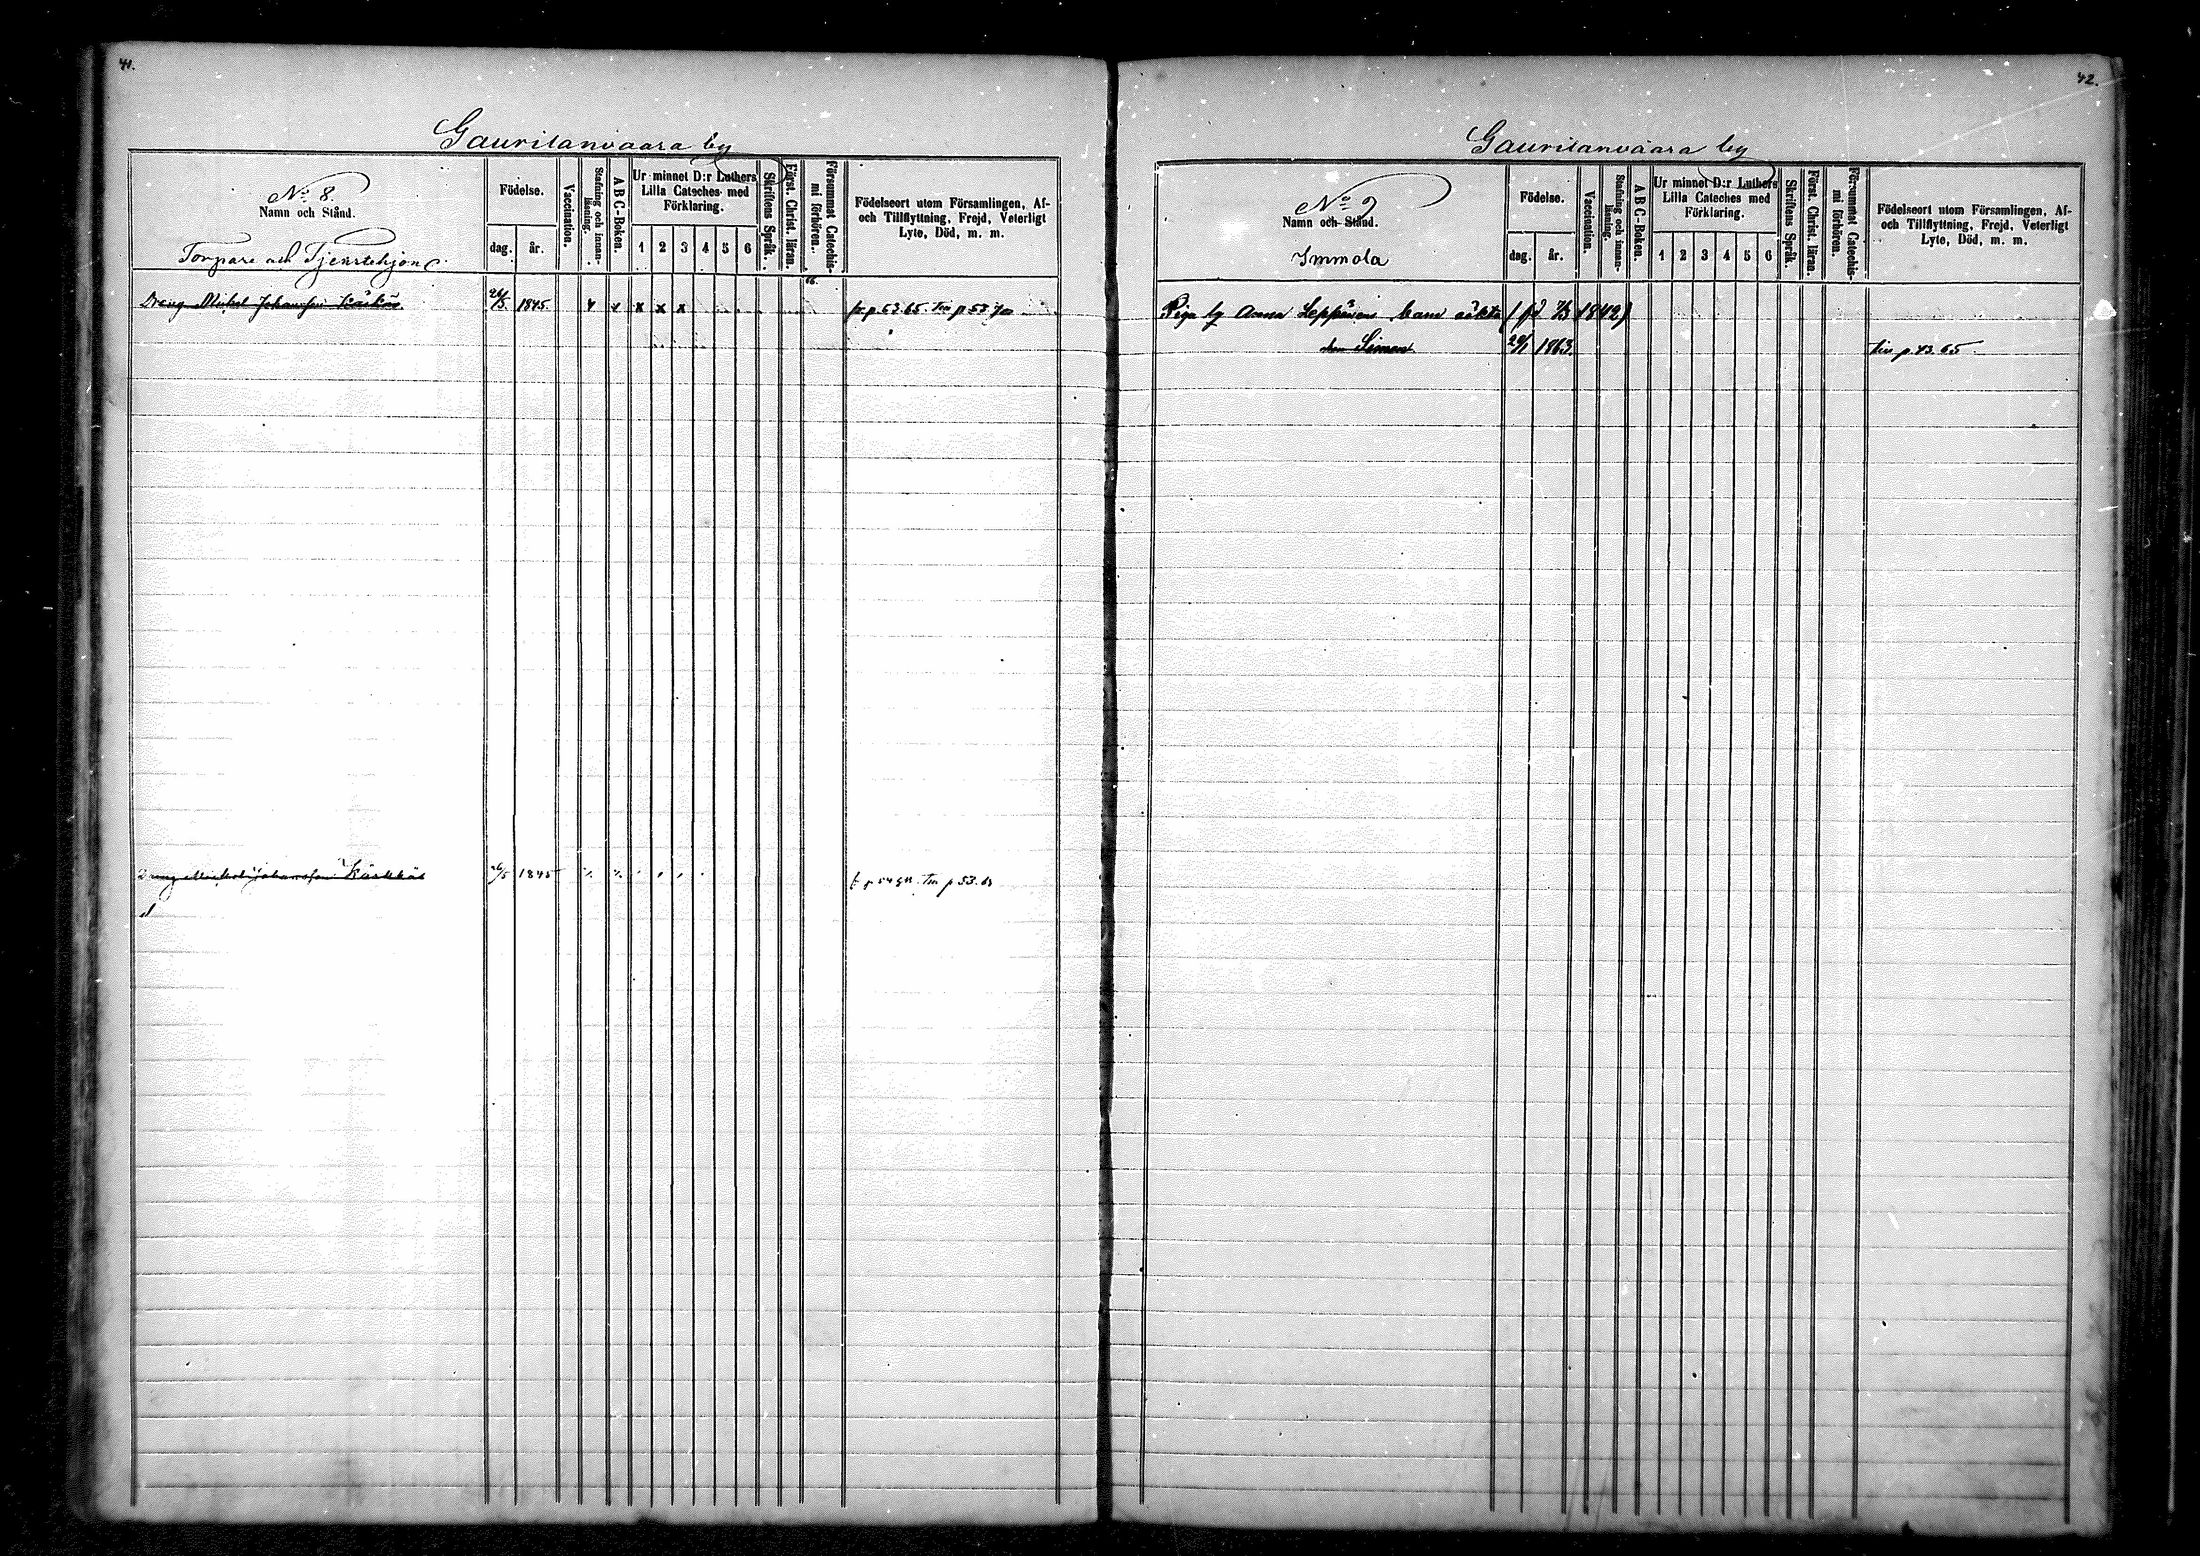 41.
Gaurilanvaara by
No 8.
Namn och Stånd.
Torpare och Tjenstehjon
Födelse.
dag. år.
Vaccination.
Stafning och innan-läsning.
A B C-Boken.
Ur minnet D:r Luthers
Lilla Cateches med
Förklaring.
1 2 3 4 5 6
Skriftens Språk.
Först. Christ. läran.
Försummat Catechis-
mi förhören.
Födelseort utom Församlingen, Af-
och Tillflyttning, Frejd, Veterligt
Lyte, Död, m. m.
Dreng Michel Johansson 26/5 1845. x x x x x fr p 53.65. tin p 53
Dreng Michel Johansson 26/5 1845 tin p 53.
42.
Gaurilanvaara by
No 9
Namn och Stånd.
Immola
Födelse.
dag. år.
Vaccination.
Stafning och innan-läsning.
A B C-Boken.
Ur minnet D:r Luthers
Lilla Cateches med
Förklaring.
1 2 3 4 5 6
Skriftens Språk.
Först. Christ. läran.
Försummat Catechis-
mi förhören.
Födelseort utom Församlingen, Af-
och Tillflyttning, Frejd, Veterligt
Lyte, Död, m. m.
Piga Anna Leppänen barn oäkta (fd 7/3 1842)
Simon 1863. tin p 43.65